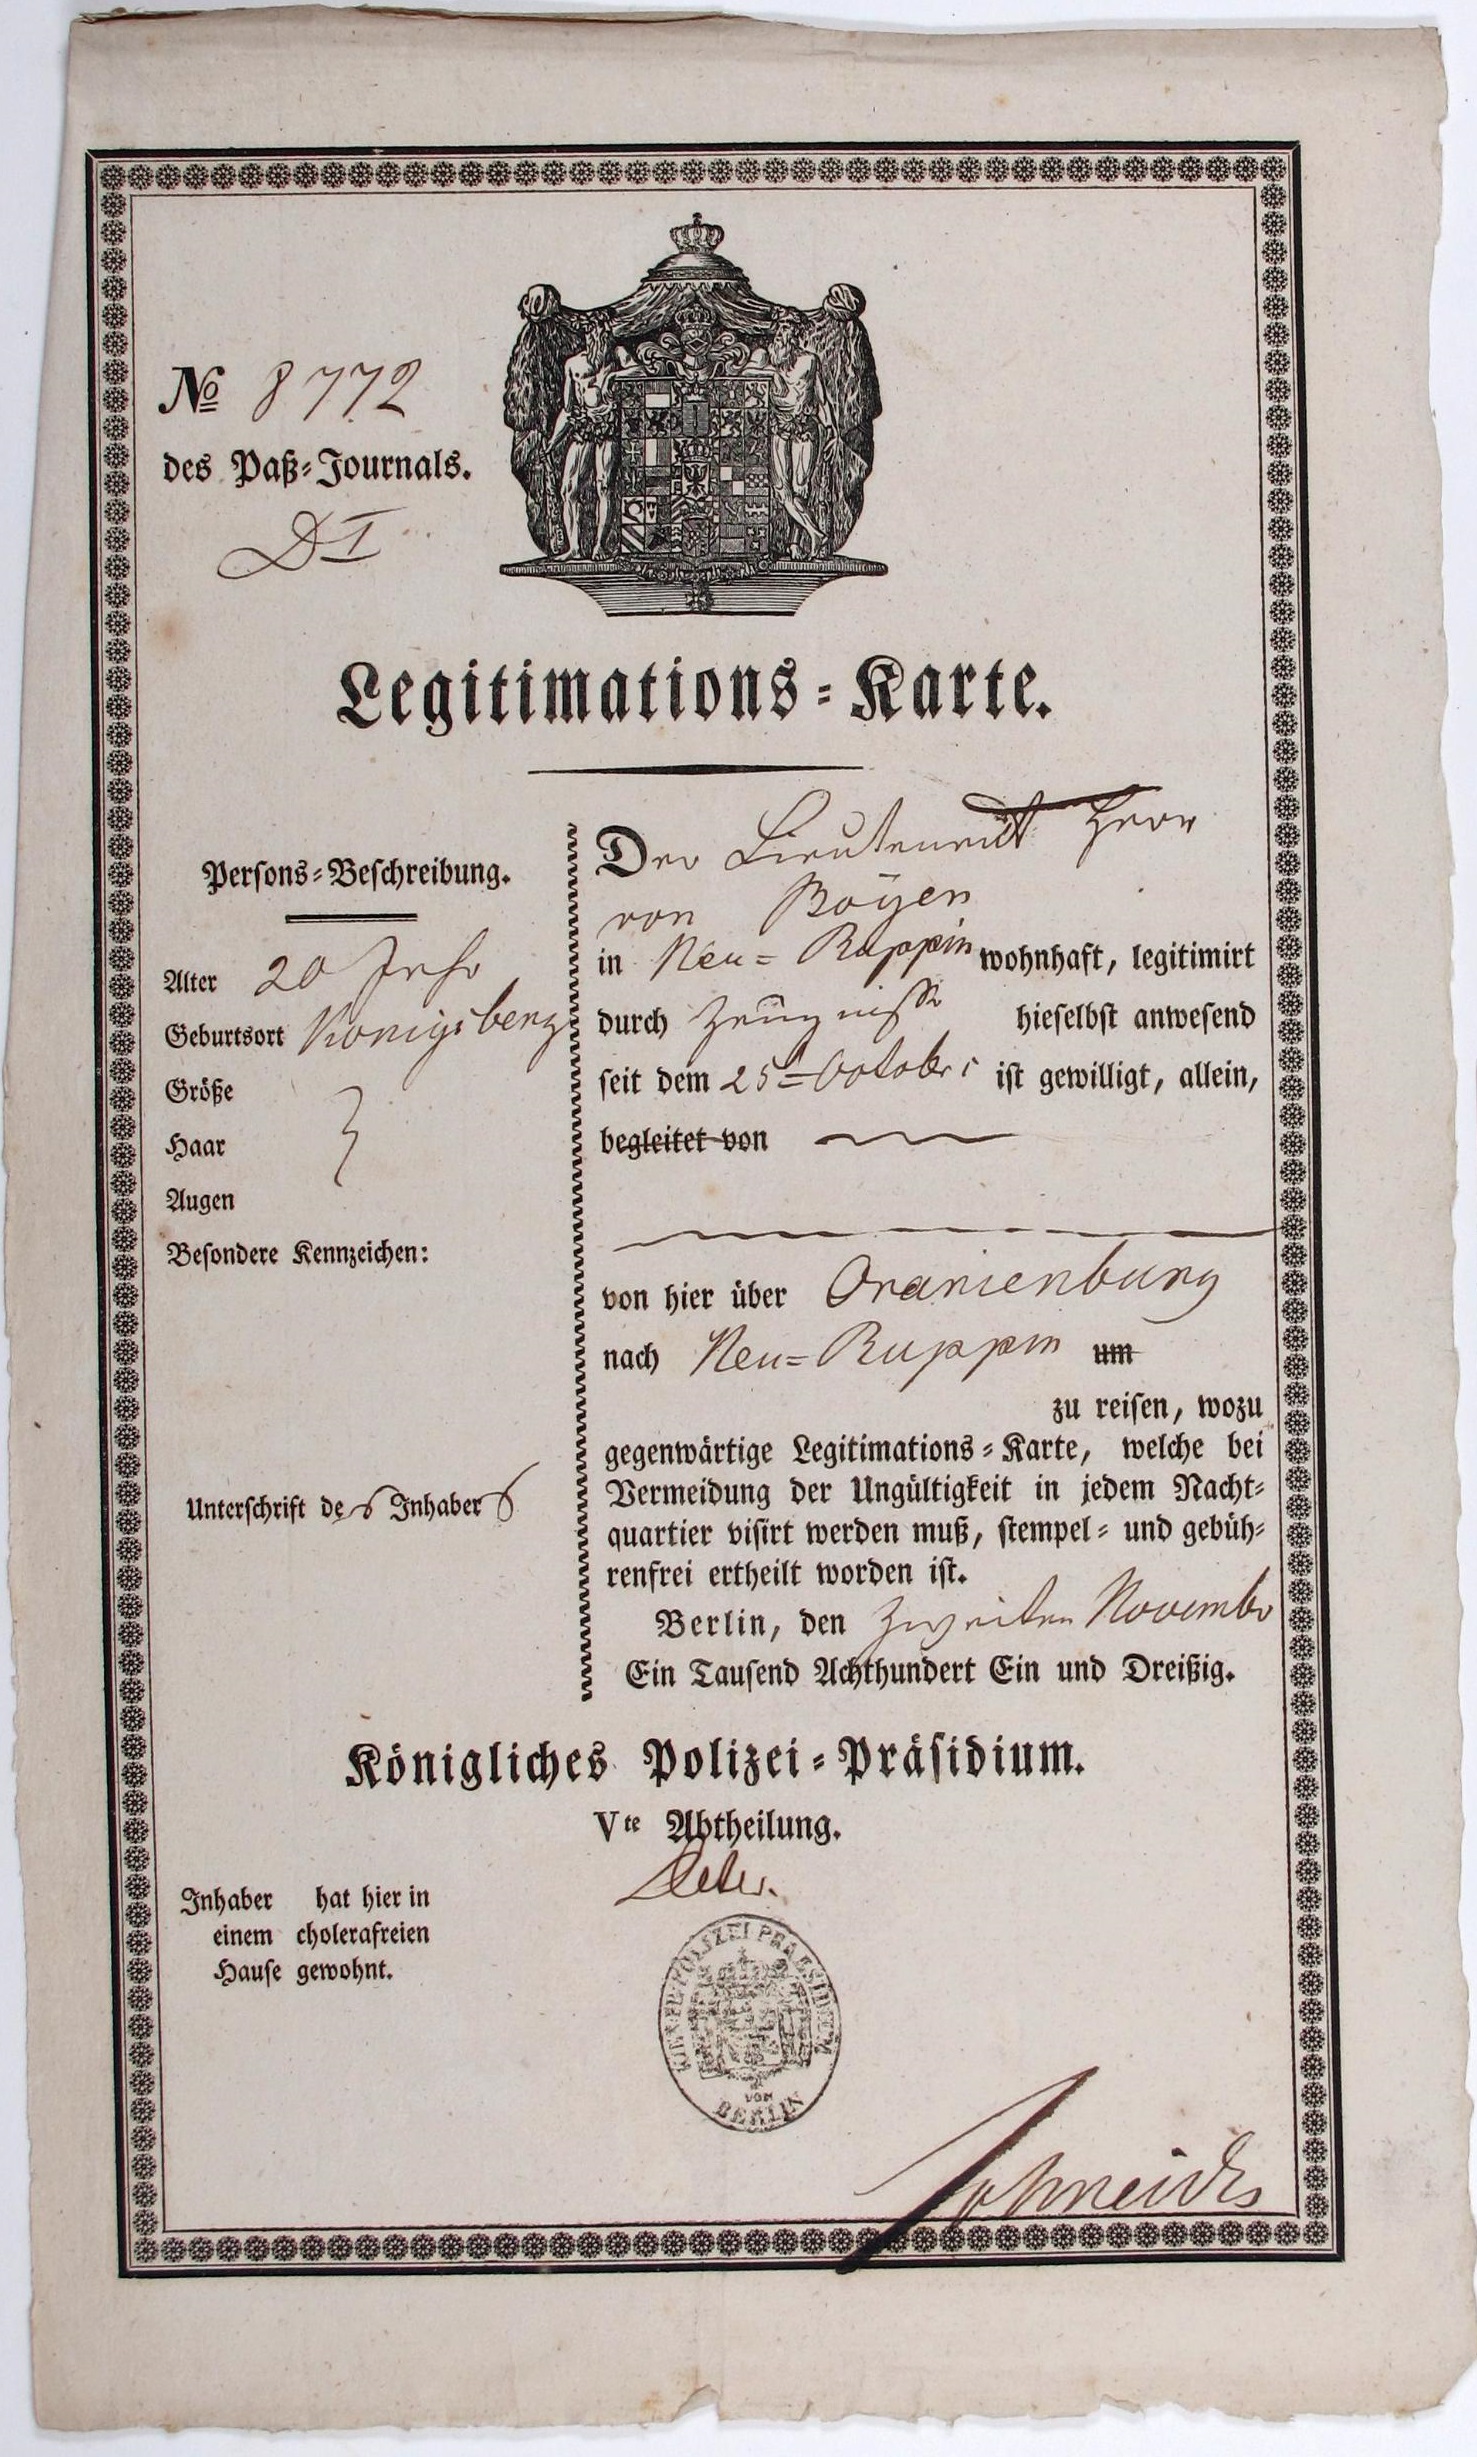 № 8772
des Paß-Journals.
D I
Legitimations-Karte.
Persons-Beschreibung.
Alter 20 Jahr
Geburtsort Königsberg
Größe
Haar
Augen
Besondere Kennzeichen:
Unterschrift des Inhabers
Der Lieutenant Herr
von Boÿen
in Neu-Ruppin wohnhaft, legitimirt
durch Zeugniß hieselbst anwesend
seit dem 25t October ist gewilligt, allein,
begleitet von
von hier über Oranienburg
nach Neu-Ruppin um
zu reisen, wozu
gegenwärtige Legitimations-Karte, welche bei
Vermeidung der Ungültigkeit in jedem Nacht-
quartier visirt werden muß, stempel- und gebüh-
renfrei ertheilt worden ist.
Berlin, den zweiten November
Ein Tausend Achthundert Ein und Dreißig.
Königliches Polizei-Präsidium.
Vte Abtheilung.
Inhaber hat hier in
einem cholerafreien
Hause gewohnt.
POLIZEI PRAESIDIUM
VON
BERLIN
Schneider